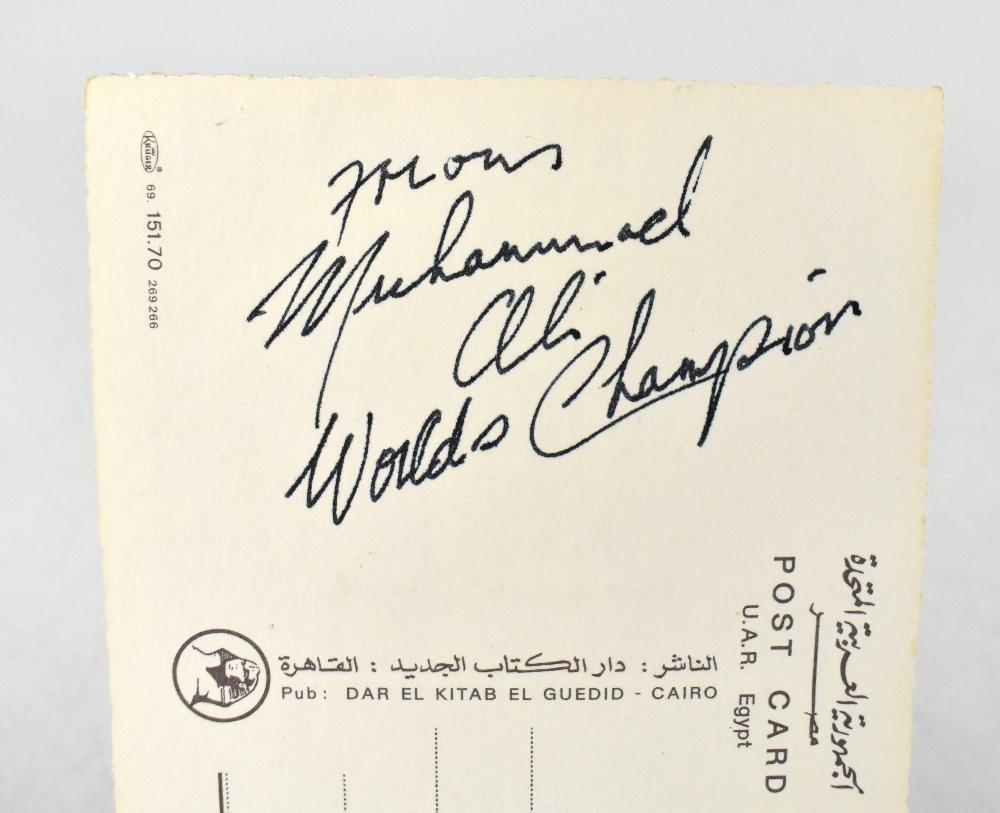 From
Muhammad
Ali
Worlds Champion
KRÜGER ®
69. 151.70 269 266
الجمهورية العربية المتحدة
مصر
POST CARD
U.A.R. Egypt
الناشر : دار الكتاب الجديد : القاهرة
Pub : DAR EL KITAB EL GUEDID - CAIRO